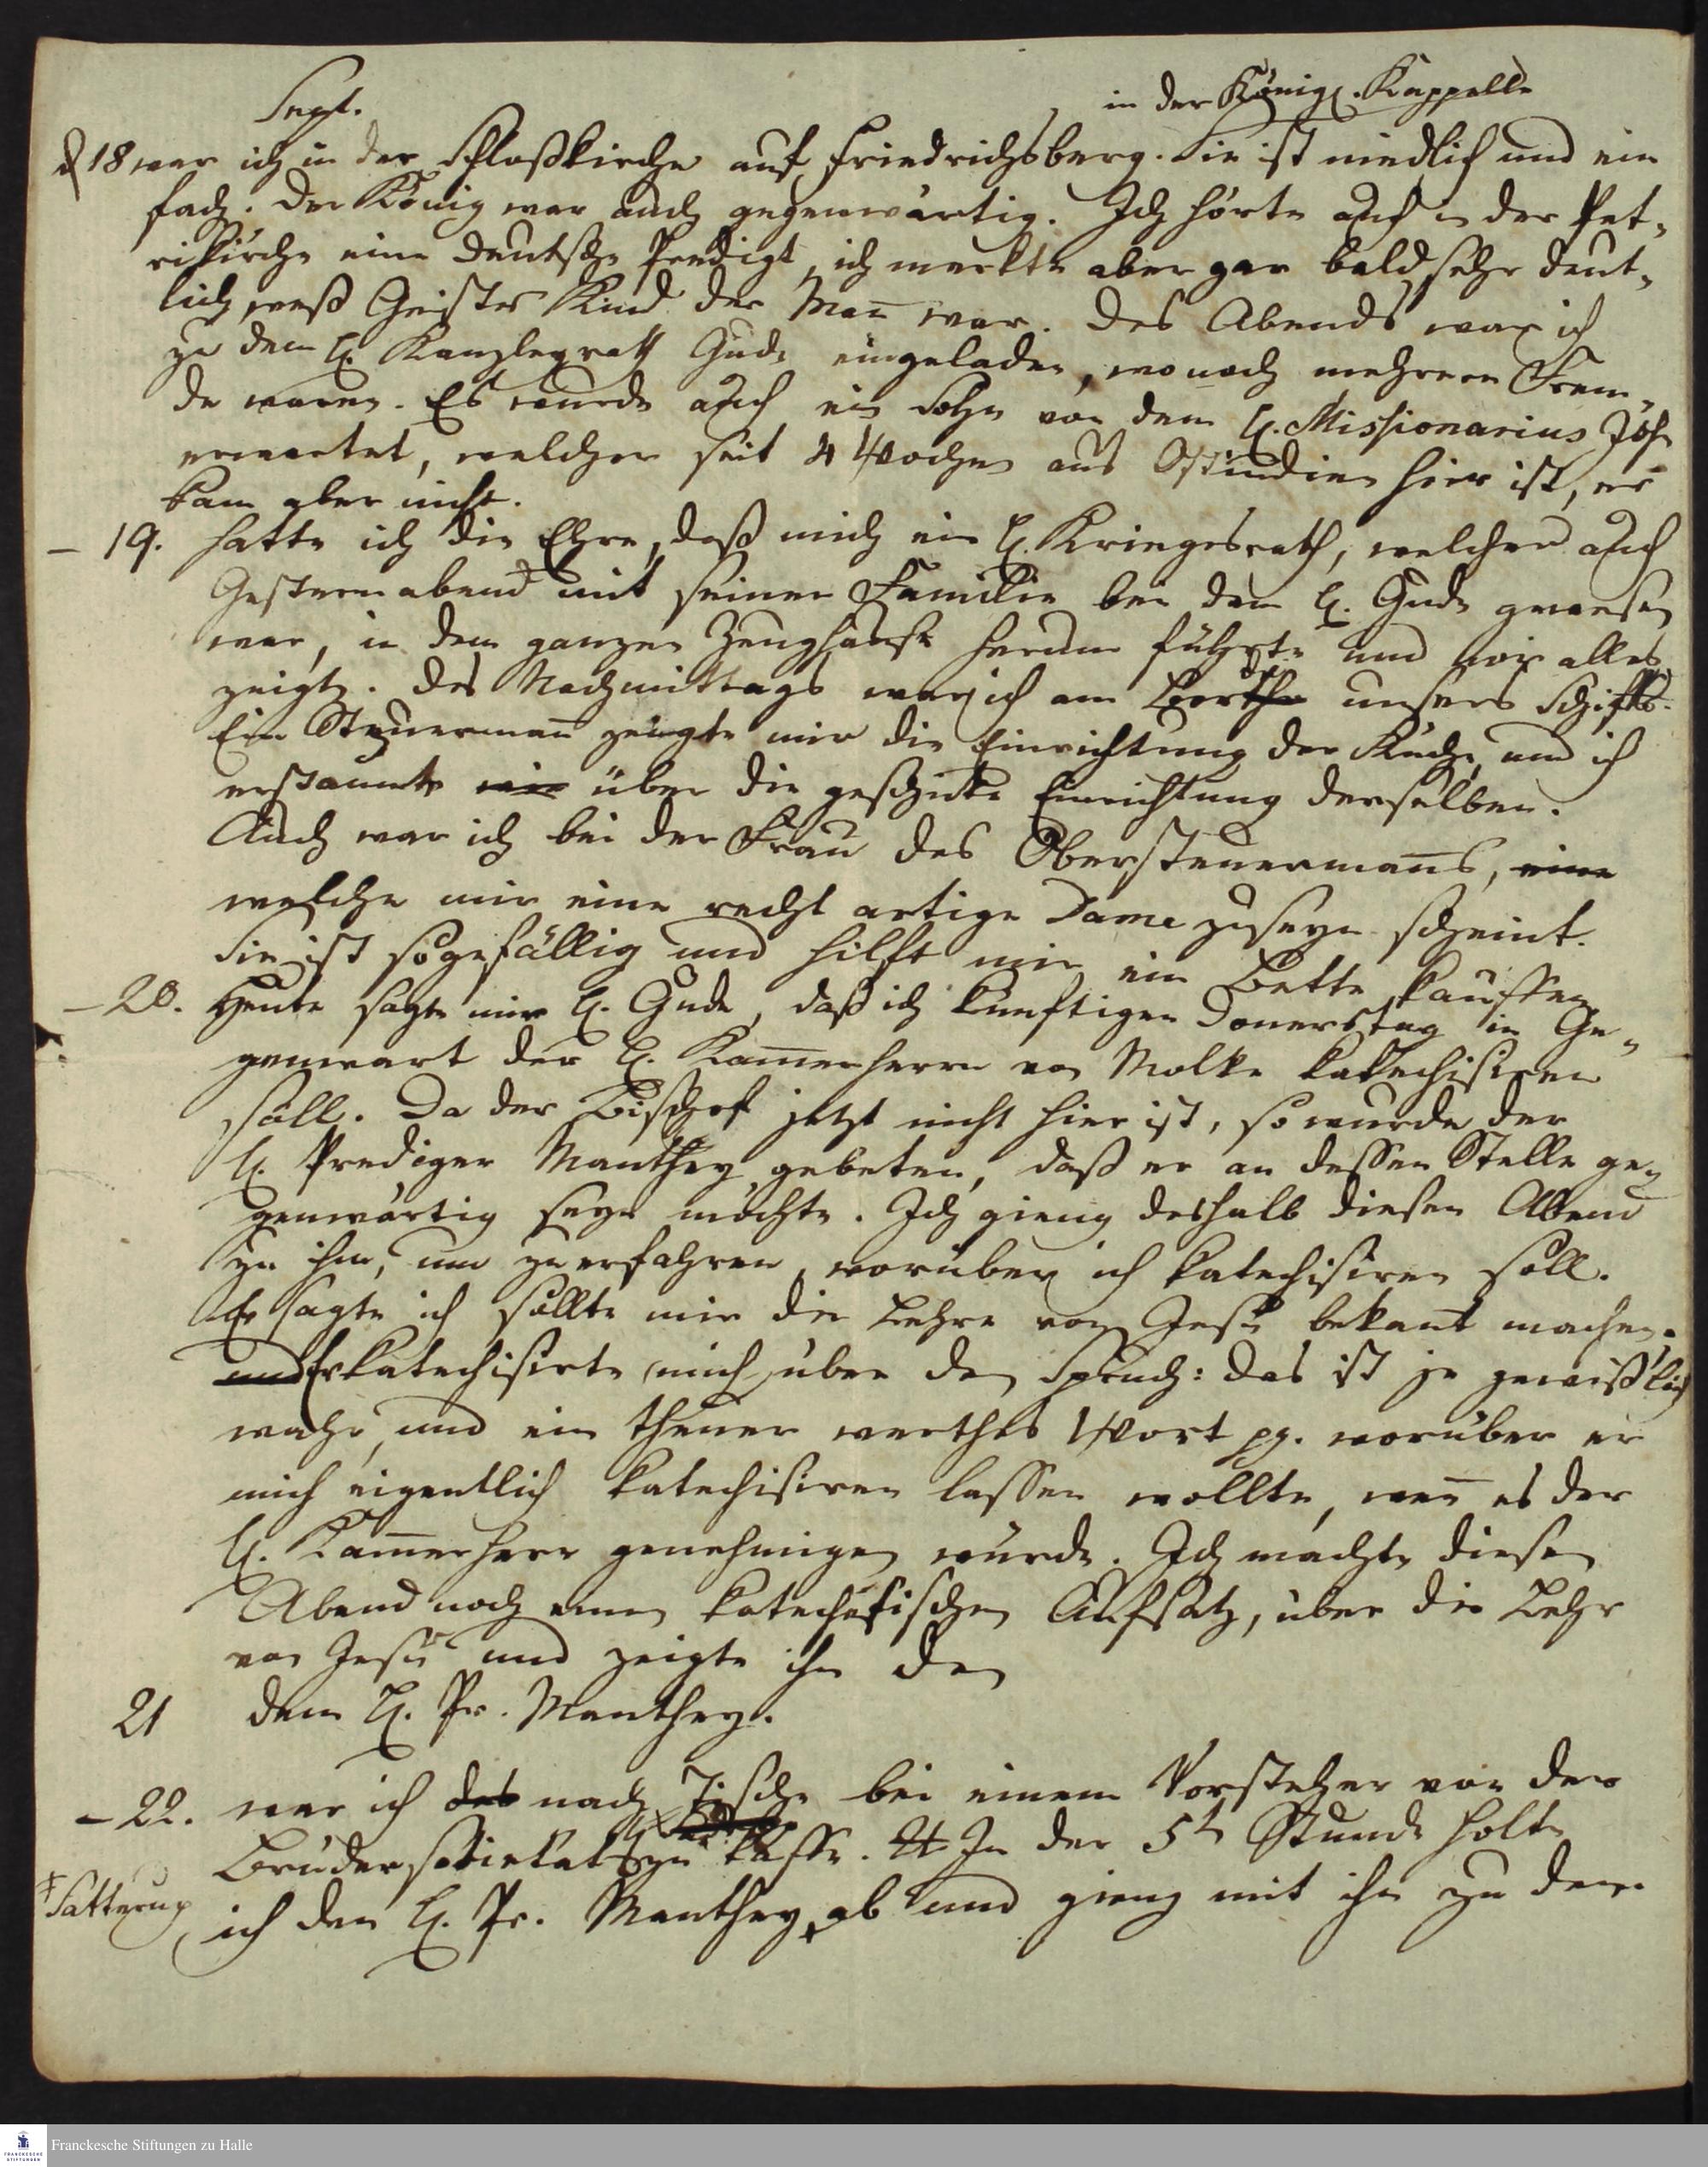 Sept.
in der Königl. Kappelle
d 18 war ich in der Schloßkirche auf Friedrichsberg. Sie ist niedlich und ein
fach. Der König war auch gegenwärtig. Ich hörte auch in der Pet-
rikirche eine deutsche Predigt, ich merkte aber gar bald sehr deut-
lich weß Geistes Kind der Man̄ war. Des Abends war ich
zu dem H. Kanzleyrath Gude eingeladen, wo noch mehrere Frem-
de waren. Es wurde auch ein Sohn von dem H. Missionarius Joh
erwartet, welcher seit 4 Wochen aus Ostindien hier ist, er
kam aber nicht.
- 19. hatte ich die Ehre, daß mich ein H. Kriegesrath, welcher auch
Gestern abend mit seiner Familie bei dem H. Gude gewesen
war, in dem ganzen Zeughause herum führte und mir alles
zeigte. Des Nachmittags war ich am Borth unsers Schiffs.
Ein Steuerman̄ zeigte mir die Einrichtung der Küche, und ich
erstaunte über die geschickte Einrichtung derselben.
Auch war ich bei der Frau des Obersteuerman̄s, eine
welche mir eine recht artige Dame zu seyn scheint.
Sie ist so gefällig und hilft mir ein Bette kauffen
- 20. Heute sagte mir H. Gude, daß ich künftigen Don̄erstag in Ge-
genwart der H. Kam̄erherrn von Molke katechisiren
soll. Da der Bischof jetzt nicht hier ist, so wurde der
H. Prediger Manthey gebeten, daß er an dessen Stelle ge-
genwärtig seyn möchte. Ich gieng deshalb diesen Abend
zu ihm, um zu erfahren, worüber ich katechisiren soll.
Er sagte ich sollte mir die Lehre von Jesu bekan̄t machen.
und Er katechisirte mich über den Spruch: das ist je gewißlich
wahr, und ein theuer werthes Wort pp. worüber er
mich eigentlich katechisiren lassen wollte, wen̄ es der
H. Kam̄erherr genehmigen würde. Ich machte diesen
Abend noch einen katechetischen Aufsatz, über die Lehr
von Jesu und zeigte ihn den
21 dem H. Pr. Manthey.
- 22. war ich des nach Tische bei einem Vorsteher von der
Brudersocietät zu Kaffe. In der 5t Stunde holte
ich den H. Pr. Manthey ab und gieng mit ihm zu dem
Franckesche Stiftungen zu Halle
FRANCKESCHE
STIFTUNGEN